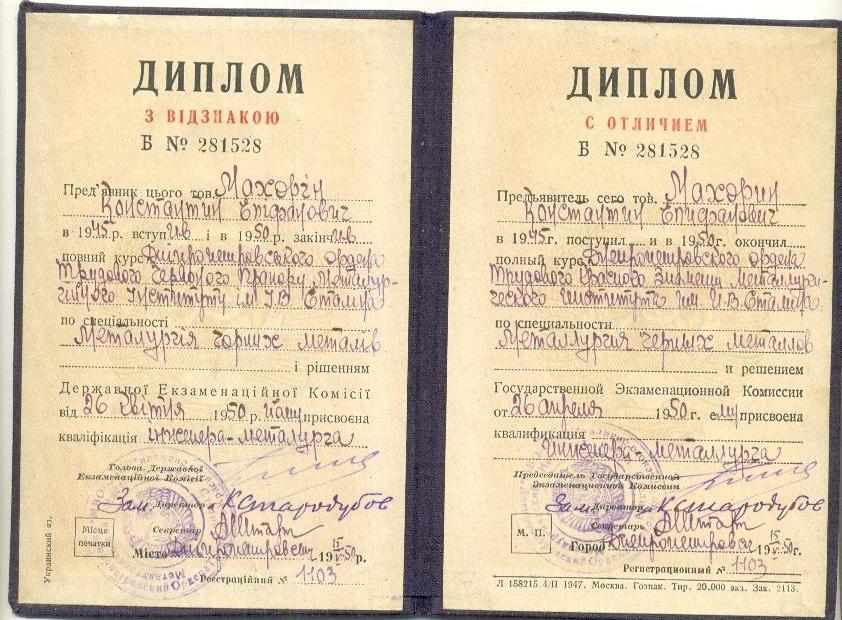 ДИПЛОМ
З ВІДЗНАКОЮ
Б № 281528
Пред'явник цього тов. Маховін
Константин Єпіфанович
в 1945 р. вступив і в 1950 р. закінчив
повний курс Дніпропетровського ордера
Трудового Червоного Прапору Металур-
гічного Інституту ім. І. В. Сталіна
по спеціальності
Металургія чорних металів
і рішенням
Державної Екзаменаційної Комісії
від 26 квітня 1950 р. йому присвоєна
кваліфікація інженера-металурга
Голова Державної
Екзаменаційної Комісії
Зам. Директор К Стародубов
Секретар
Місце
печатки
Місто Дніпропетровськ 15/V 1950 р.
Реєстраційний № 1103
Украинский яз.
ДИПЛОМ
С ОТЛИЧИЕМ
Б № 281528
Предъявитель сего тов. Маховин
Константин Епифанович
в 1945 г. поступил и в 1950 г. окончил
полный курс Днепропетровского ордена
Трудового Красного Знамени Металлурги-
ческого института им. И. В. Сталина
по специальности
Металлургия черных металлов
и решением
Государственной Экзаменационной Комиссии
от 26 апреля 1950 г. ему присвоена
квалификация
инженера-металлурга
Председатель Государственной
Экзаменационной Комиссии
Зам. Директор К Стародубов
Секретарь
М. П.
Город Днепропетровск 15/V 1950 г.
Регистрационный № 1103
Л 158215 4/II 1947. Москва. Гознак. Тир. 20.000 экз. Зак. 2113.